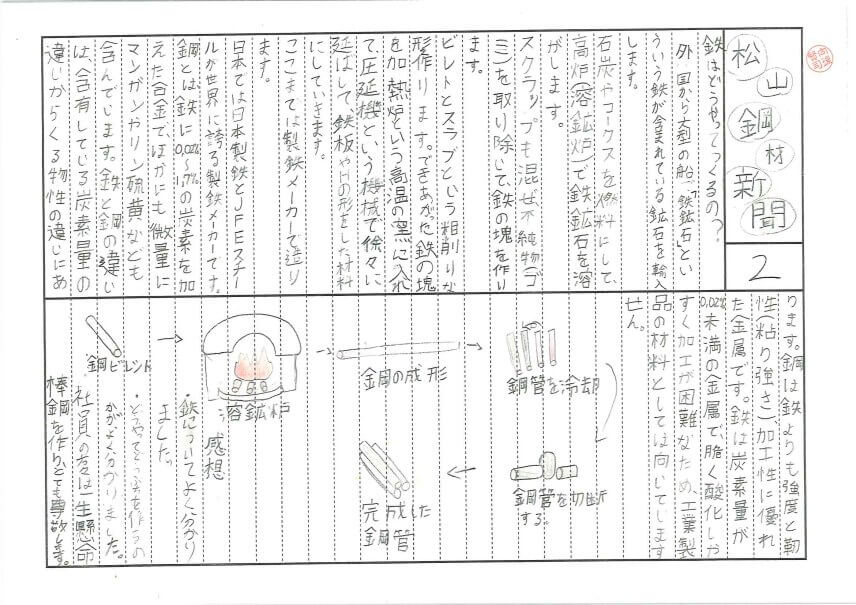 松山鋼材新聞
2
鉄はどうやってつくるの？
外国から大型の船「鉄鉱石」とい
ういう鉄が含まれている鉱石を輸入
します。
石炭やコークスを燃料にして、
高炉(溶鉱炉)で鉄鉱石を溶
かします。
スクラップも混ぜ不純物(ゴ
ミ)を取り除いて、鉄の塊を作り
ます。
ビレトとスラブという粗削りな
形作ります。できあがた鉄の塊
を加熱炉という高温の窯に入れ
て、圧延機という機械で徐々に
延ばして、鉄板やHの形をした材料
にしていきます。
ここまでは製鉄メーカーで造り
ます。
日本では日本製鉄とJFEスチー
ルが世界に誇る製鉄メーカーです。
鋼とは、鉄に0.02%～1.7%の炭素を加
えた合金でほかにも微量に
マンガンやリン硫黄なども
含んでいます。鉄と鋼の違い
は、含有している炭素量の
違いからくる物性の違いにあ
ります。鋼は鉄よりも強度と靭
性(粘り強さ)、加工性に優れ
た金属です。鉄は炭素量が
0.02%未満の金属で、脆く酸化しや
すく加工が困難なため、工業製
品の材料としては向いてします
せん。
鋼ビレント
溶鉱炉
鋼の成形
鋼管を冷却
鋼管を切断
する。
完成した
鋼管
感想
・鉄についてよく分かり
ました。
・どうやってっぷを作るの
かがよく分かりました。
社員の方は一生懸命
棒鋼を作り、とても尊敬します。